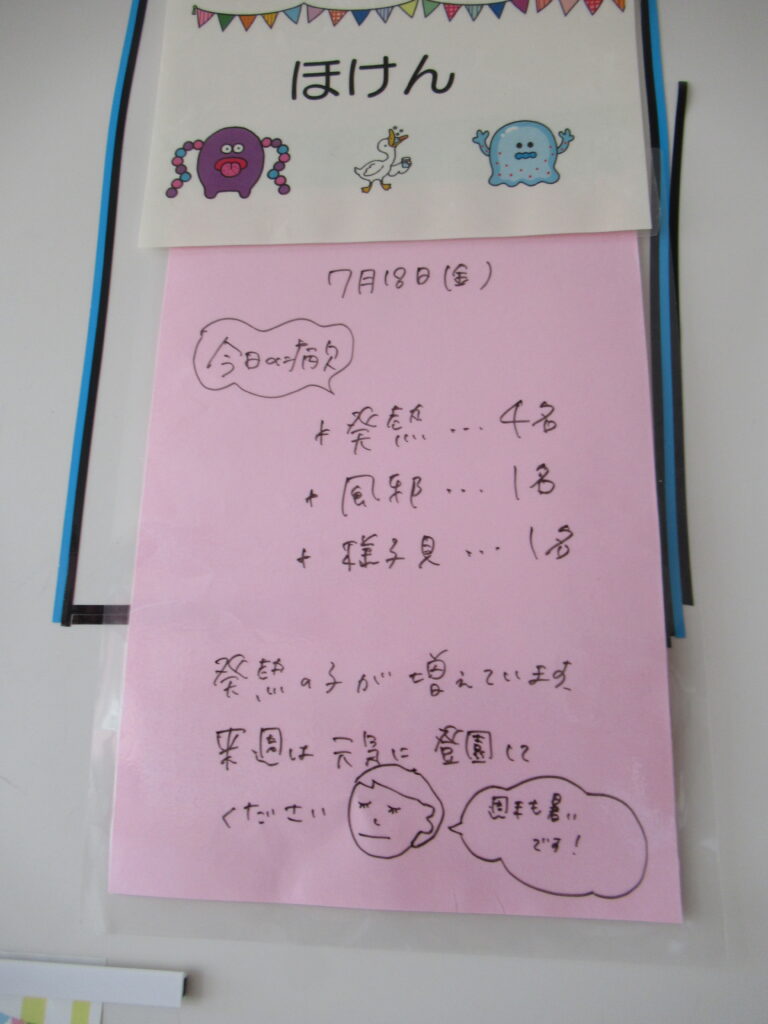 ほけん
7月18日(金)
今日の病欠
+ 発熱 … 4名
+ 風邪 … 1名
+ 様子見 … 1名
発熱の子が増えています
来週は元気に登園して
ください
週末も暑い
です!